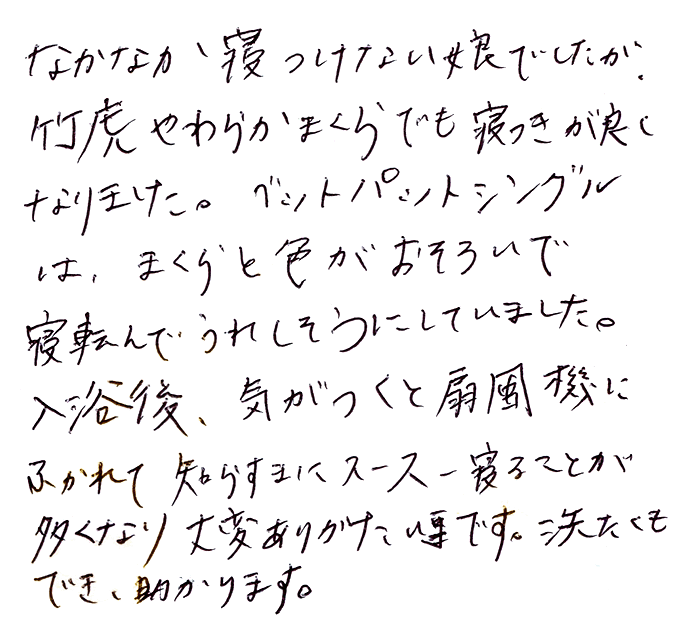 なかなか寝つけない娘でしたが、
竹虎やわらかまくらでも寝つきが良く
なりました。ベットパットシングル
は、まくらと色がおそろいで
寝転んでうれしそうにしていました。
入浴後、気がつくと扇風機に
ふかれて知らすまにスースー寝ることが
多くなり大変ありがたい事です。洗たくも
でき、助かります。